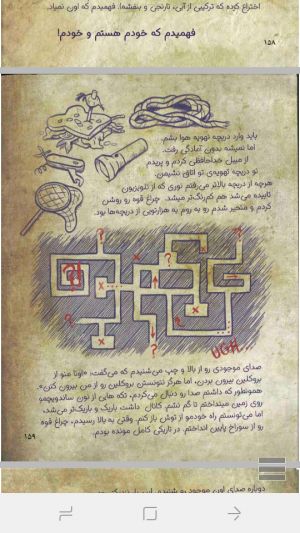 اختراع کرده که ترکیبی از آبی، نارنجی و بنفشه! فهمیدم که اون نمیاد.
فهمیدم که خودم هستم و خودم!
۱۵۸
باید وارد دریچه تهویه هوا بشم.
اما نمیشه بدون آمادگی رفت.
از مبیل خداحافظی کردم و پریدم
تو دریچه تهویه‌ی تو اتاق نشیمن.
هرچه از دریچه بالاتر می‌رفتم نوری که از تلویزیون
تابیده می‌شد هم کم‌رنگ‌تر میشد. چراغ قوه رو روشن
کردم و متحیر شدم رو به روم یه هزارتویی از دریچه‌ها بود.
?
?
?
?
?
?
x
x
x
x
UGH
صدای موجودی رو از بالا و چپ می‌شنیدم که می‌گفت: «اونا منو از
بروکلین بیرون بردن، اما هرگز نتونستن بروکلین رو از من بیرون کنن».
همونطور که داشتم صدا رو دنبال می‌کردم، تکه هایی از نون ساندویچمو
روی زمین مینداختم تا گم نشم. کانال داشت باریک و باریک‌تر می‌شد،
اما می‌تونستم راه خودمو از توش باز کنم. وقتی به بالا رسیدم، چراغ قوه
رو از سوراخ پایین انداختم. در تاریکی کامل مونده بودم.
۱۵۹
دوباره صدای اون موجود رو شنیدم